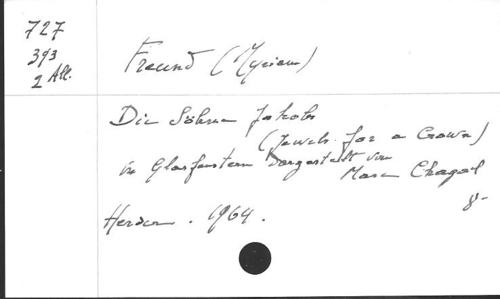 727
393
2 All.
Freund (Myriam)
Die Söhne Jakobs
(Jewels for a Crown)
in Glasfenstern Dargestellt von
Marc Chagal
8-
Herder . 1964 .